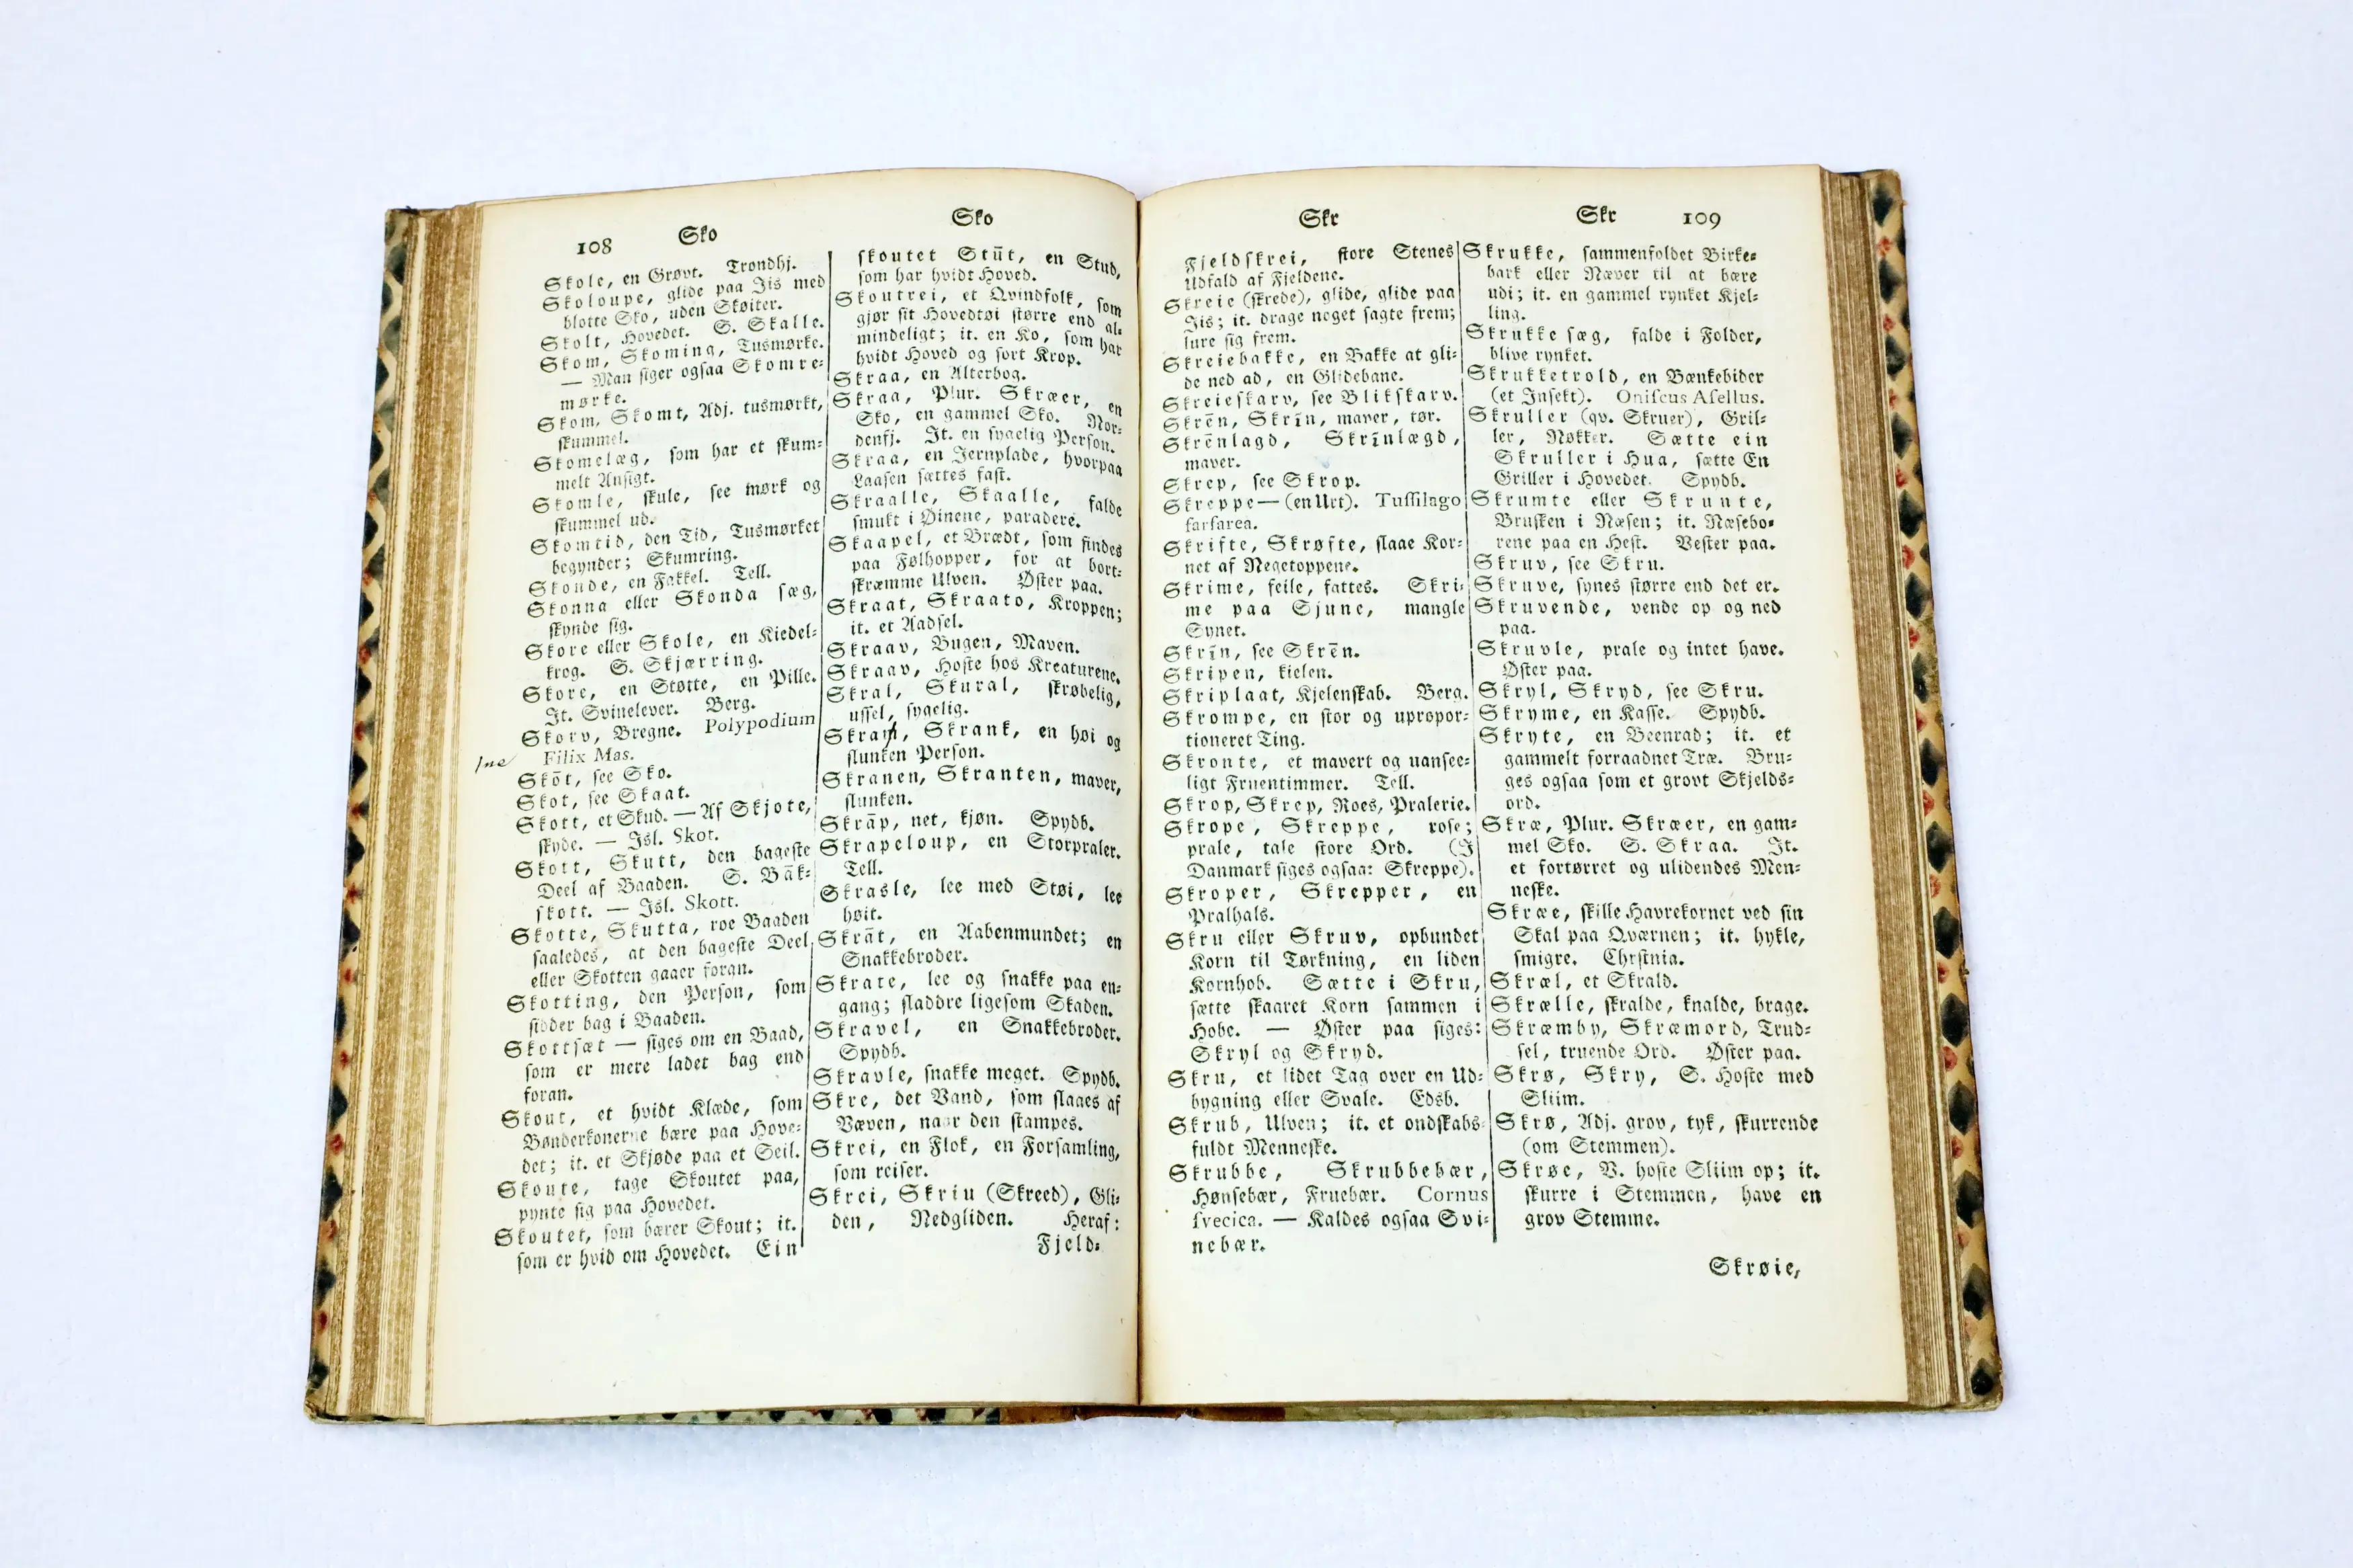 108
Sko
Skole, en Grøvt. Trondhj.
Skoloupe, glide paa Jis med
blotte Sko, uden Skøiter.
Skolt, Hovedet. S. Skalle.
Skom, Skoming, Tusmørke.
— Man siger ogsaa Skomre-
mørke.
Skom, Skomt, Adj. tusmørkt,
skummel.
Skomelæg, som har et skum-
melt Ansigt.
Skomle, skule, see mørk og
skummel ud.
Skomtid, den Tid, Tusmørket
begynder; Skumring.
Skonde, en Fakkel. Tell.
Skonna eller Skonda sæg,
skynde sig.
Skore eller Skole, en Kiedel-
krog. S. Skjærring.
Skore, en Støtte, en Pille.
It. Svinelever. Berg.
Skorv, Bregne. Polypodium
Filix Mas.
Skōt, see Sko.
Skot, see Skaat.
Skott, et Skud. — Af Skjote,
skyde. — Isl. Skot.
Skott, Skutt, den bageste
Deel af Baaden. S. Bāk-
skott. — Isl. Skott.
Skotte, Skutta, roe Baaden
saaledes, at den bageste Deel
eller Skotten gaaer foran.
Skotting, den Person, som
sidder bag i Baaden.
Skottsæt — siges om en Baad,
som er mere ladet bag end
foran.
Skout, et hvidt Klæde, som
Bønderkonerne bære paa Hove-
det; it. et Skjøde paa et Seil.
Skoute, tage Skoutet paa,
pynte sig paa Hovedet.
Skoutet, som bærer Skout; it.
som er hvid om Hovedet. Ein
Sko
skoutet Stūt, en Stud,
som har hvidt Hoved.
Skoutrei, et Qvindfolk, som
gjør sit Hovedtøi større end al-
mindeligt; it. en Ko, som har
hvidt Hoved og sort Krop.
Skraa, en Alterbog.
Skraa, Plur. Skræer, en
Sko, en gammel Sko. Nor-
denfj. It. en sygelig Person.
Skraa, en Jernplade, hvorpaa
Laasen sættes fast.
Skraalle, Skaalle, falde
smukt i Øinene, paradere.
Skaapel, et Brædt, som findes
paa Følhopper, for at bort-
skræmme Ulven. Øster paa.
Skraat, Skraato, Kroppen;
it. et Aadsel.
Skraav, Bugen, Maven.
Skraav, Hoste hos Kreaturene.
Skral, Skural, skrøbelig,
ussel, sygelig.
Skram, Skrank, en høi og
slunken Person.
Skranen, Skranten, maver,
slunken.
Skrāp, net, kjøn. Spydb.
Skrapeloup, en Storpraler.
Tell.
Skrasle, lee med Støi, lee
høit.
Skrāt, en Aabenmundet; en
Snakkebroder.
Skrate, lee og snakke paa en-
gang; sladdre ligesom Skaden.
Skravel, en Snakkebroder.
Spydb.
Skravle, snakke meget. Spydb.
Skre, det Vand, som slaaes af
Væven, naar den stampes.
Skrei, en Flok, en Forsamling,
som reiser.
Skrei, Skriu (Skreed), Gli-
den, Nedgliden. Heraf:
Fjeld-
Skr
Fjeldskrei, store Stenes
Udfald af Fjeldene.
Skreie (skrede), glide, glide paa
Jis; it. drage noget sagte frem;
lure sig frem.
Skreiebakke, en Bakke at gli-
de ned ad, en Glidebane.
Skreieskarv, see Blikskarv.
Skrēn, Skrīn, maver, tør.
Skrēnlagd, Skrīnlægd,
maver.
Skrep, see Skrop.
Skreppe — (en Urt). Tussilago
farfarea.
Skrifte, Skrøfte, slaae Kor-
net af Negetoppene.
Skrime, feile, fattes. Skri-
me paa Sjune, mangle
Synet.
Skrīn, see Skrēn.
Skripen, kielen.
Skriplaat, Kjelenskab. Berg.
Skrompe, en stor og upropor-
tioneret Ting.
Skronte, et mavert og uansee-
ligt Fruentimmer. Tell.
Skrop, Skrep, Roes, Pralerie.
Skrope, Skreppe, rose;
prale, tale store Ord. (I
Danmark siges ogsaa: Skreppe).
Skroper, Skrepper, en
Pralhals.
Skru eller Skruv, opbundet
Korn til Tørkning, en liden
Kornhob. Sætte i Skru,
sætte skaaret Korn sammen i
Hobe. — Øster paa siges:
Skryl og Skryd.
Skru, et lidet Tag over en Ud-
bygning eller Svale. Edsb.
Skrub, Ulven; it. et ondskabs-
fuldt Menneske.
Skrubbe, Skrubbebær,
Hønsebær, Fruebær. Cornus
svecica. — Kaldes ogsaa Svi-
nebær.
Skr
109
Skrukke, sammenfoldet Birke-
bark eller Næver til at bære
udi; it. en gammel rynket Kjel-
ling.
Skrukke sæg, falde i Folder,
blive rynket.
Skrukketrold, en Bænkebider
(et Insekt). Oniscus Asellus.
Skruller (qv. Skruer), Gril-
ler, Nøkker. Sætte ein
Skruller i Hua, sætte En
Griller i Hovedet. Spydb.
Skrumte eller Skrunte,
Brusken i Næsen; it. Næsebo-
rene paa en Hest. Vester paa.
Skruv, see Skru.
Skruve, synes større end det er.
Skruvende, vende op og ned
paa.
Skruvle, prale og intet have.
Øster paa.
Skryl, Skryd, see Skru.
Skryme, en Kasse. Spydb.
Skryte, en Beenrad; it. et
gammelt forraadnet Træ. Bru-
ges ogsaa som et grovt Skjelds-
ord.
Skræ, Plur. Skræer, en gam-
mel Sko. S. Skraa. It.
et fortørret og ulidendes Men-
neske.
Skræe, skille Havrekornet ved sin
Skal paa Qværnen; it. hykle,
smigre. Chrstnia.
Skræl, et Skrald.
Skrælle, skralde, knalde, brage.
Skræmby, Skræmord, Trud-
sel, truende Ord. Øster paa.
Skrø, Skry, S. Hoste med
Sliim.
Skrø, Adj. grov, tyk, skurrende
(om Stemmen).
Skrøe, V. hoste Sliim op; it.
skurre i Stemmen, have en
grov Stemme.
Skrøie,